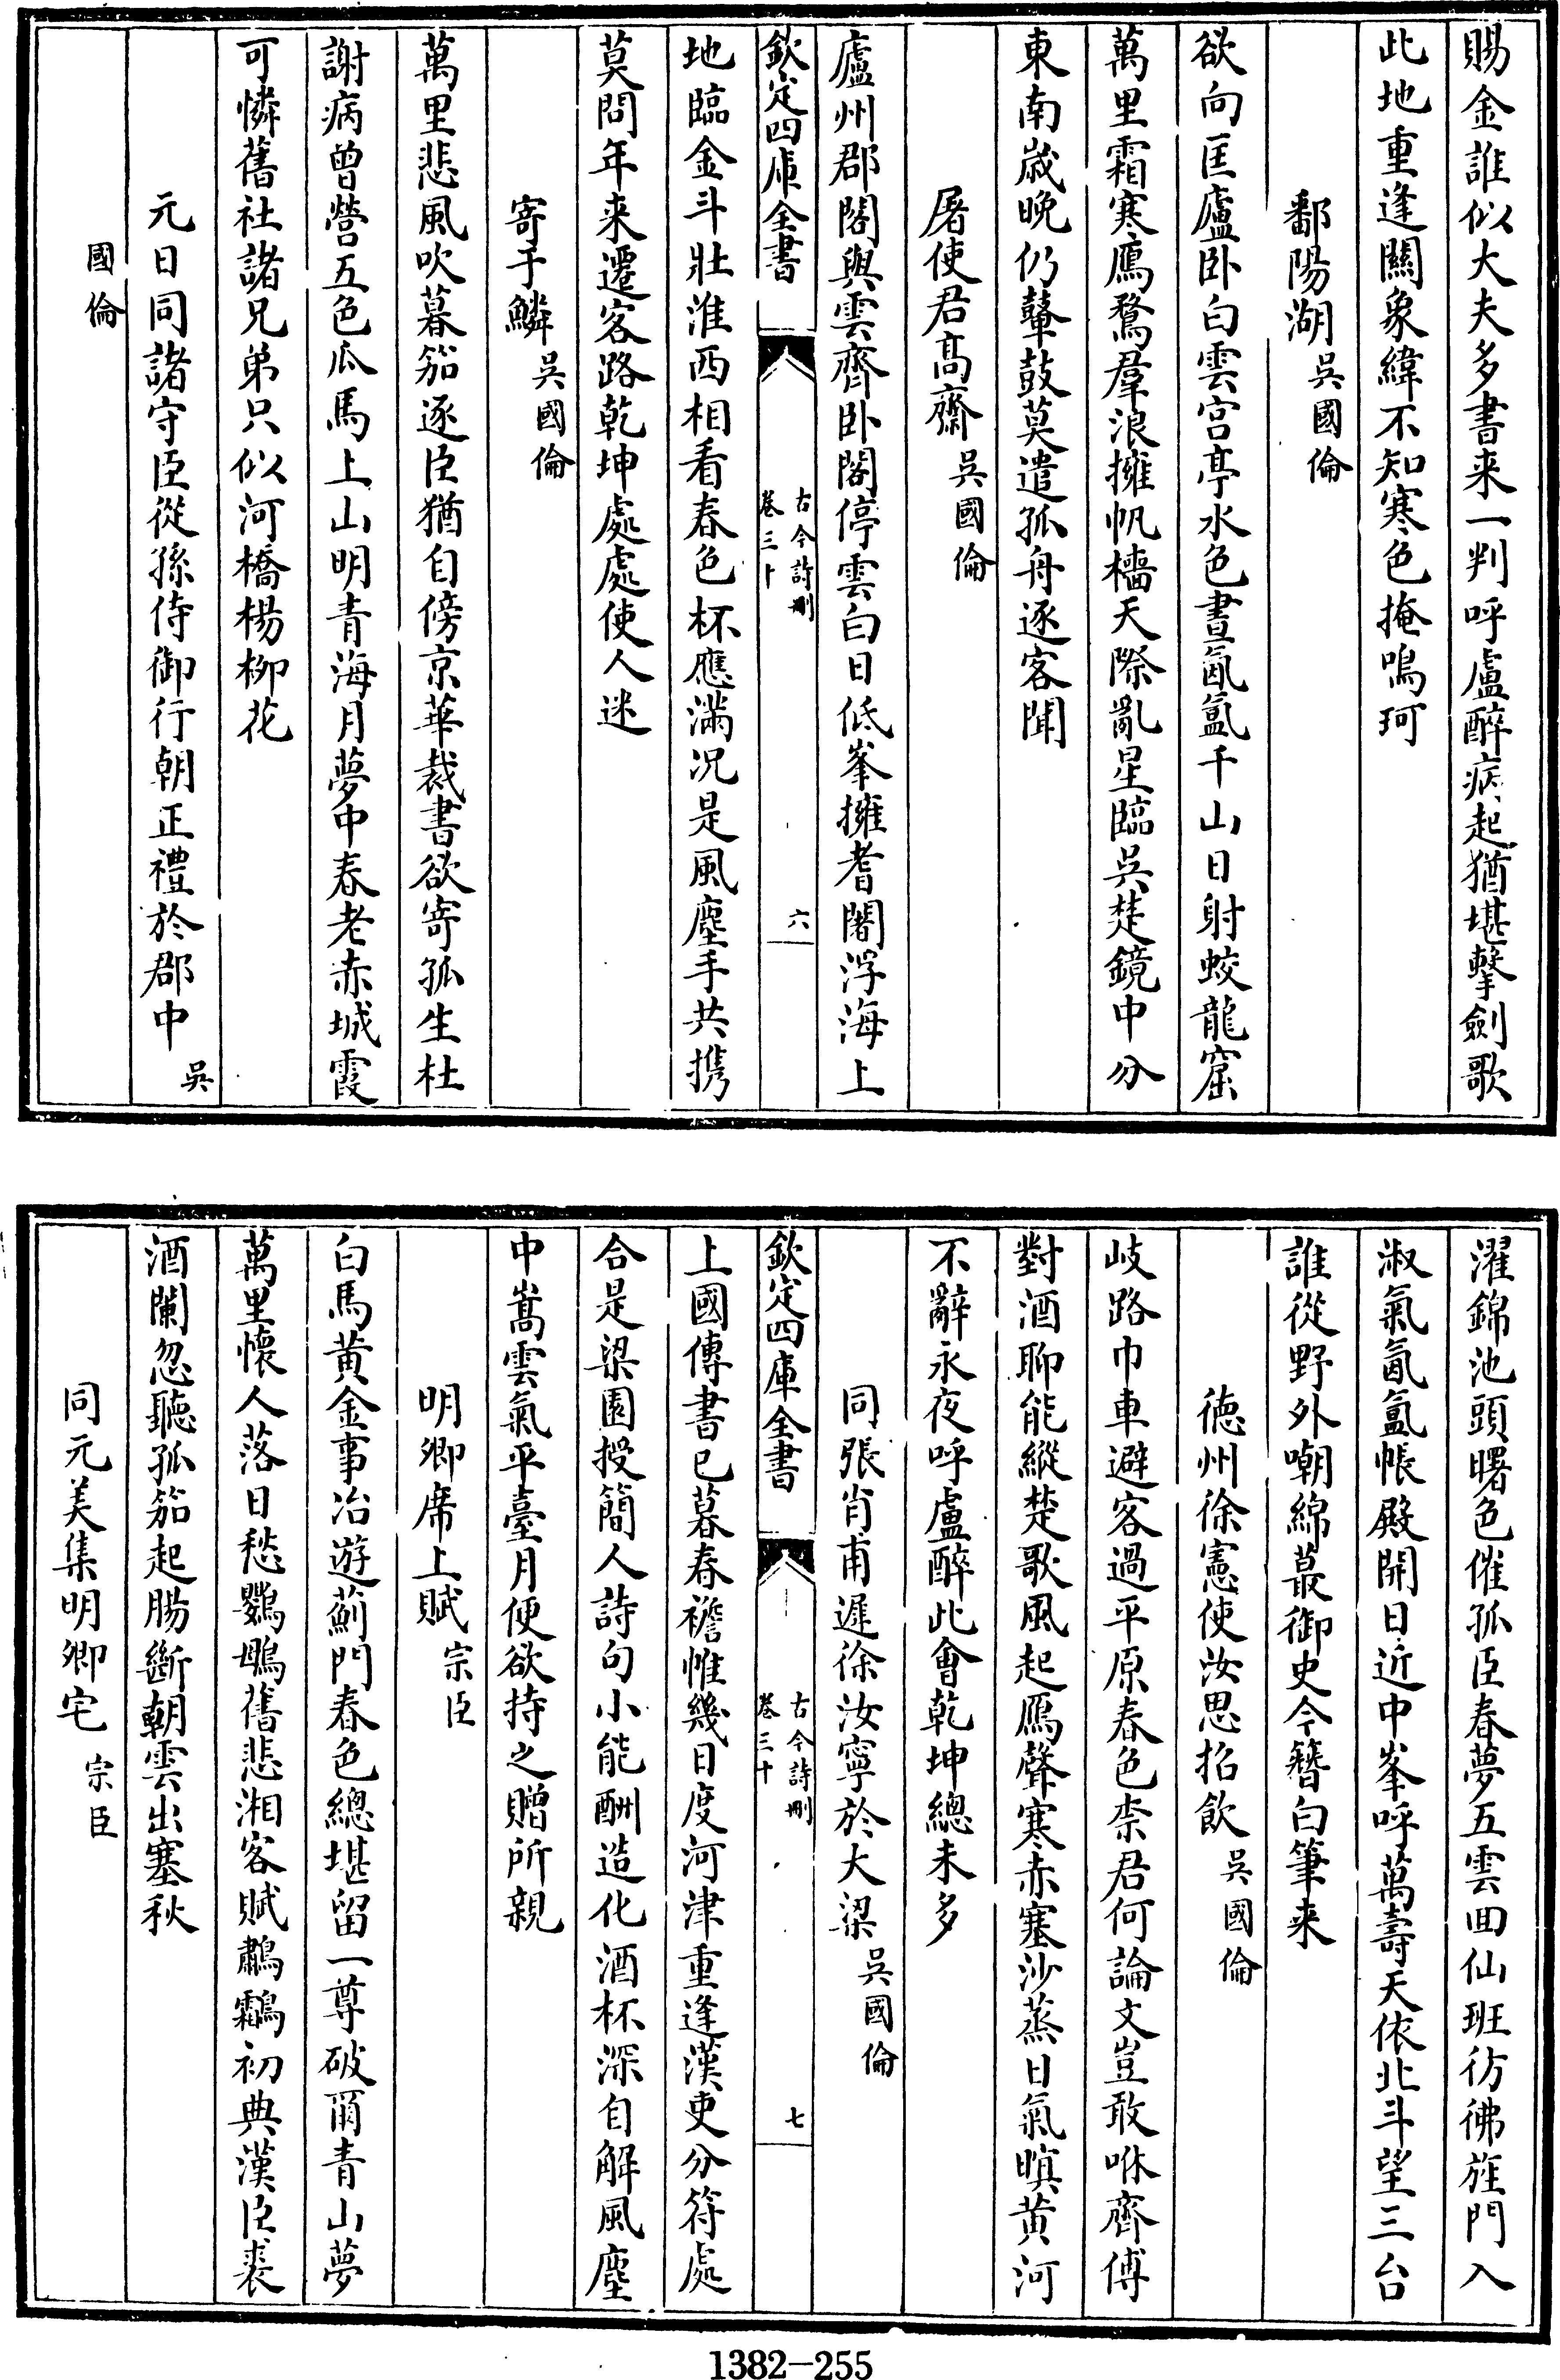 賜金誰似大夫多書来一判呼盧醉病起猶堪擊劍歌
此地重逢關象緯不知寒色掩鳴珂
鄱陽湖吳國倫
欲向匡廬卧白雲宫亭水色晝氤氲千山日射蛟龍窟
萬里霜寒鴈鶩羣浪擁帆檣天際亂星臨吳楚鏡中分
東南歳晚仍鼙鼓莫遣孤舟逐客聞
屠使君髙齋吳國倫
廬州郡閣與雲齊卧閣停雲白日低峯擁耆闍浮海上
欽定四庫全書
古今詩刪
卷三十
六
地臨金斗壯淮西相看春色杯應滿况是風塵手共攜
莫問年来遷客路乾坤處處使人迷
寄于鱗吳國倫
萬里悲風吹暮笳逐臣猶自傍京華裁書欲寄孤生杜
謝病曽營五色瓜馬上山明青海月夢中春老赤城霞
可憐舊社諸兄弟只似河橋楊栁花
元日同諸守臣從孫侍御行朝正禮於郡中吳
國倫
濯錦池頭曙色催孤臣春夢五雲回仙班彷彿旌門入
淑氣氤氲帳殿開日近中峯呼萬壽天依北斗望三台
誰從野外嘲綿蕞御史今簪白筆来
徳州徐憲使汝思招飲吳國倫
岐路巾車避客過平原春色柰君何論文豈敢咻齊傅
對酒聊能縱楚歌風起鴈聲寒赤塞沙蒸日氣暝黄河
不辭永夜呼盧醉此會乾坤總未多
同張肖甫遲徐汝寧於大梁吳國倫
欽定四庫全書
古今詩刪
卷三十
七
上國傳書已暮春襜帷幾日度河津重逢漢吏分符處
合是梁園授簡人詩句小能酬造化酒杯深自解風塵
中嵩雲氣平臺月便欲持之贈所親
明卿席上賦宗臣
白馬黄金事冶遊薊門春色總堪留一尊破爾青山夢
萬里懷人落日愁鸚鵡舊悲湘客賦鷫鸘初典漢臣裘
酒闌忽聽孤笳起腸斷朝雲出塞秋
同元美集明卿宅宗臣
1382-255